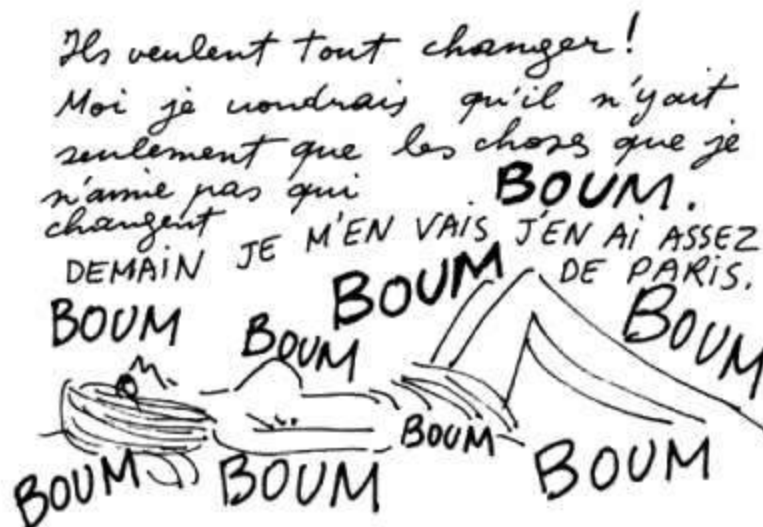 Ils veulent tout changer!
Moi je voudrais qu'il n'yait
seulement que les choses que je
n'aime pas qui
changent
BOUM.
DEMAIN JE M'EN VAIS J'EN AI ASSEZ
DE PARIS.
BOUM
BOUM
BOUM
BOUM
BOUM
BOUM
BOUM
BOUM